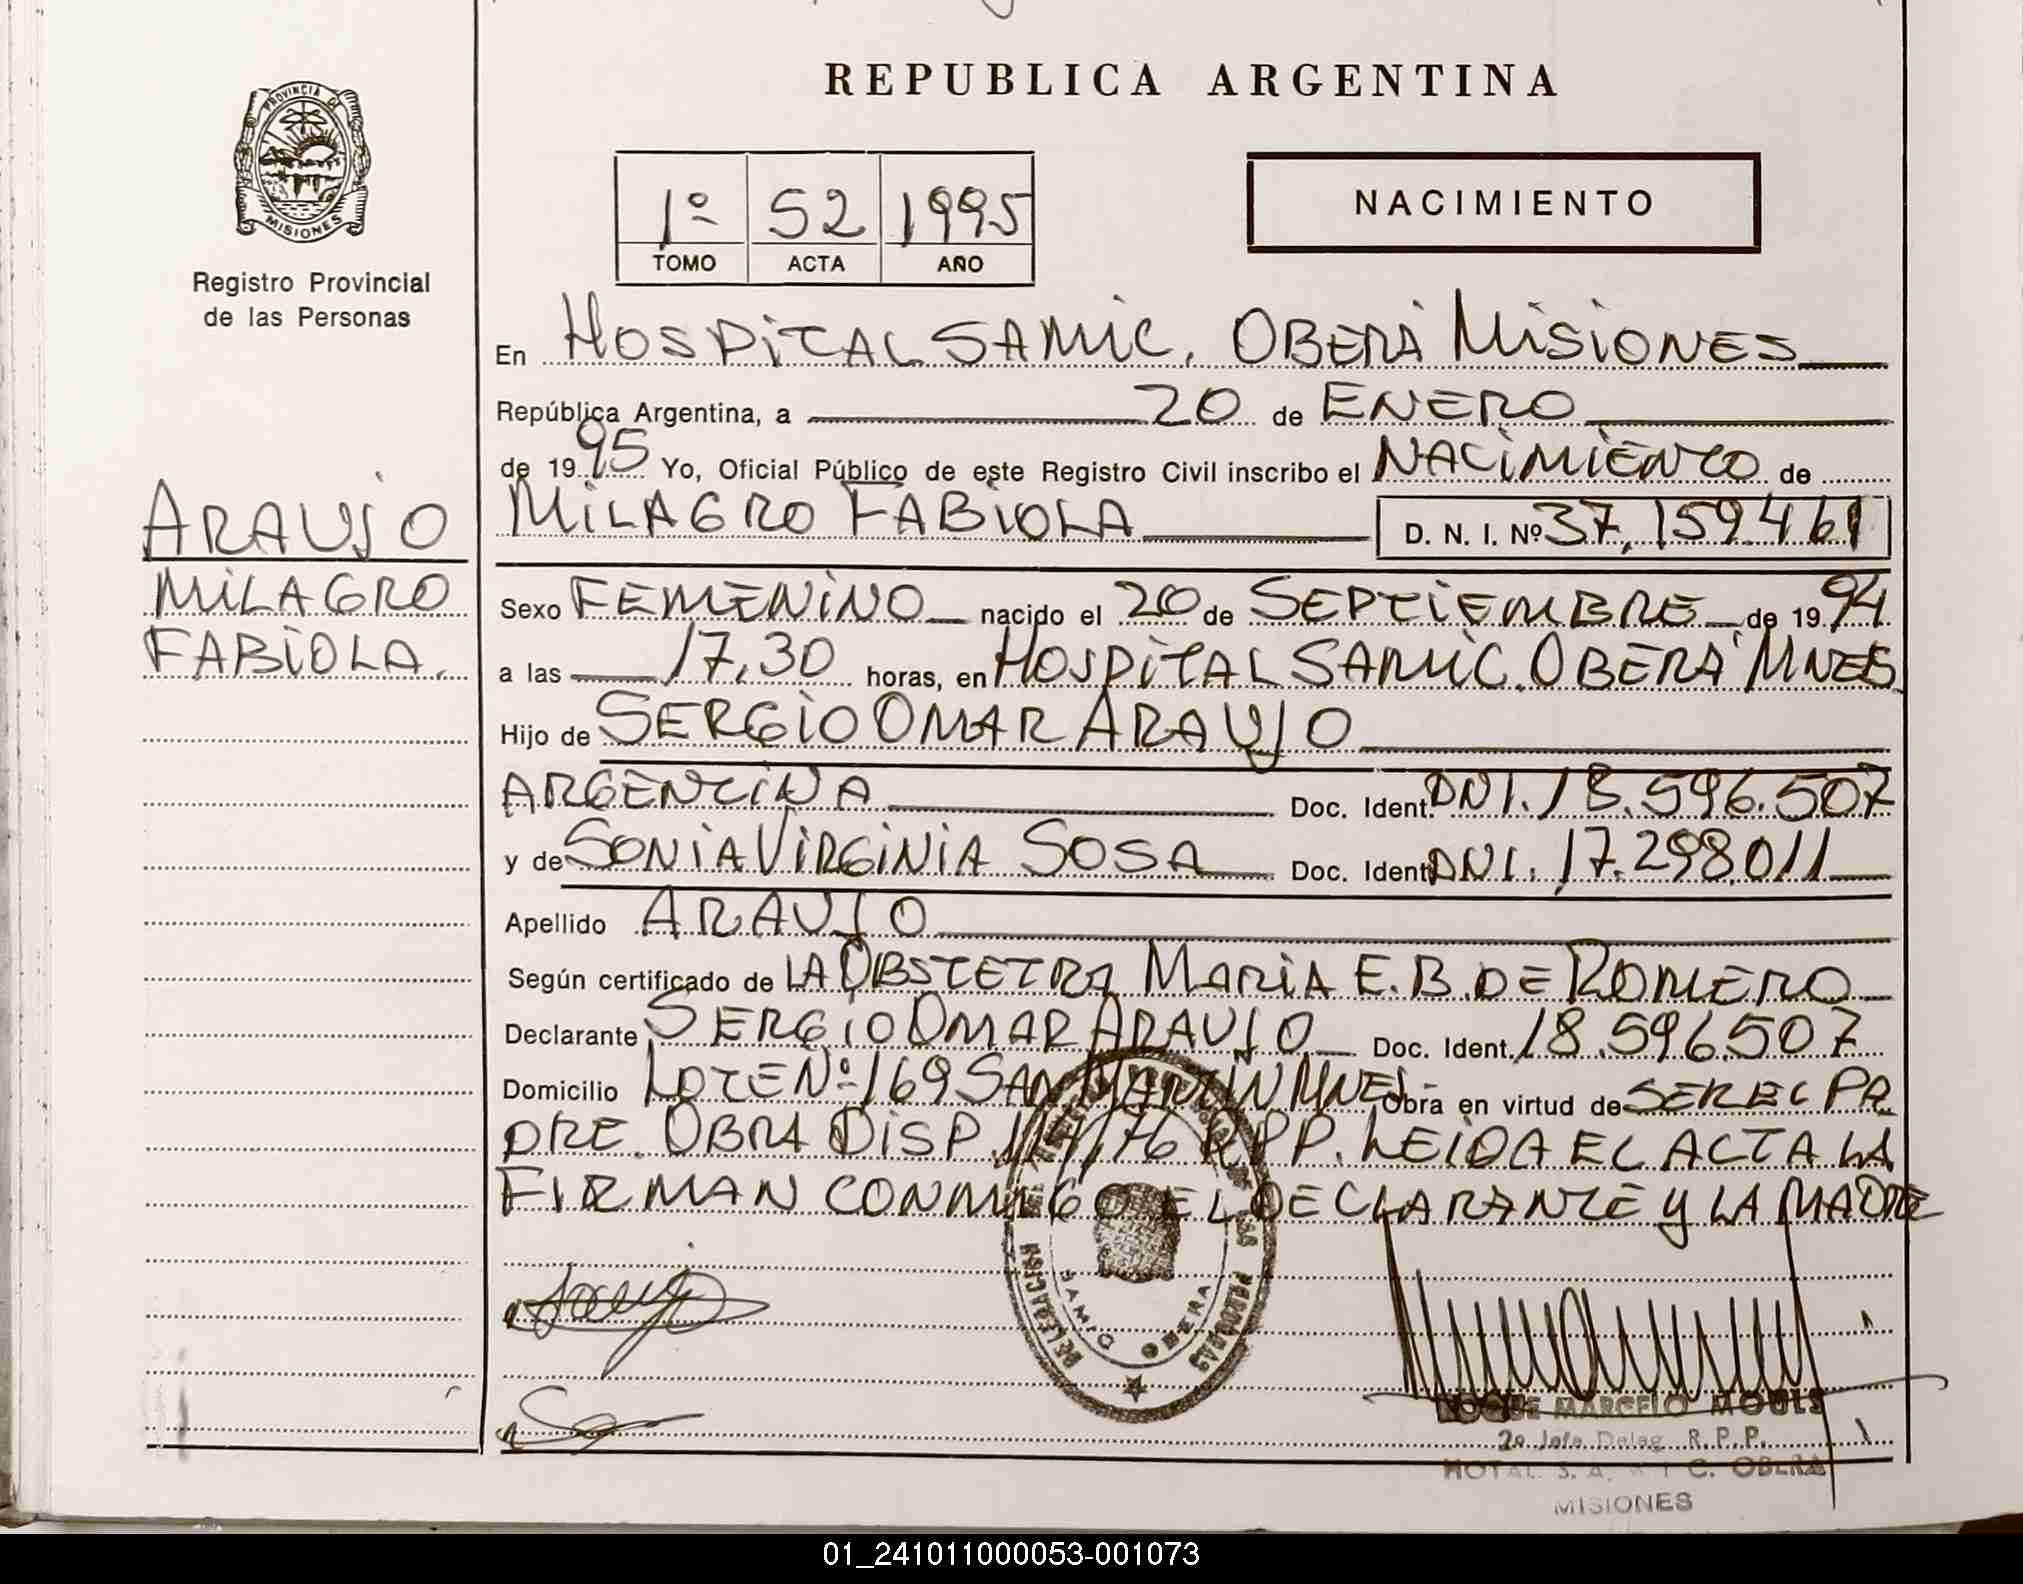 REPUBLICA ARGENTINA
PROVINCIA DE
MISIONES
Registro Provincial
de las Personas
1º 52 1995
TOMO ACTA AÑO
NACIMIENTO
En HOSPITAL SAMIC. OBERÁ MISIONES
República Argentina, a 20 de ENERO
de 1995 Yo, Oficial Público de este Registro Civil inscribo el NACIMIENTO de
ARAUJO
MILAGRO
FABIOLA.
MILAGRO FABIOLA D. N. I. Nº 37,159.461
Sexo FEMENINO nacido el 20 de SEPTIEMBRE de 1994
a las 17,30 horas, en HOSPITAL SAMIC. OBERÁ MNES
Hijo de SERGIO OMAR ARAUJO
ARGENTINA Doc. Ident. DNI. 18.596.507
y de SONIA VIRGINIA SOSA Doc. Ident DNI. 17.298.011
Apellido ARAUJO
Según certificado de LA OBSTETRA MARIA E.B. DE ROMERO
Declarante SERGIO OMAR ARAUJO Doc. Ident. 18.596.507
Domicilio LOTE Nº 169 SAN MARTIN MNES. Obra en virtud de SER EL PA
DRE. OBRA DISP. 114/76 RPP. LEIDA EL ACTA LA
FIRMAN CONMIGO EL DECLARANTE Y LA MADRE
DELEGACION
SAMIC OBERA
ROQUE MARCELO MOULS
2º Jefe Deleg. R.P.P.
C. OBERA
MISIONES
01_241011000053-001073